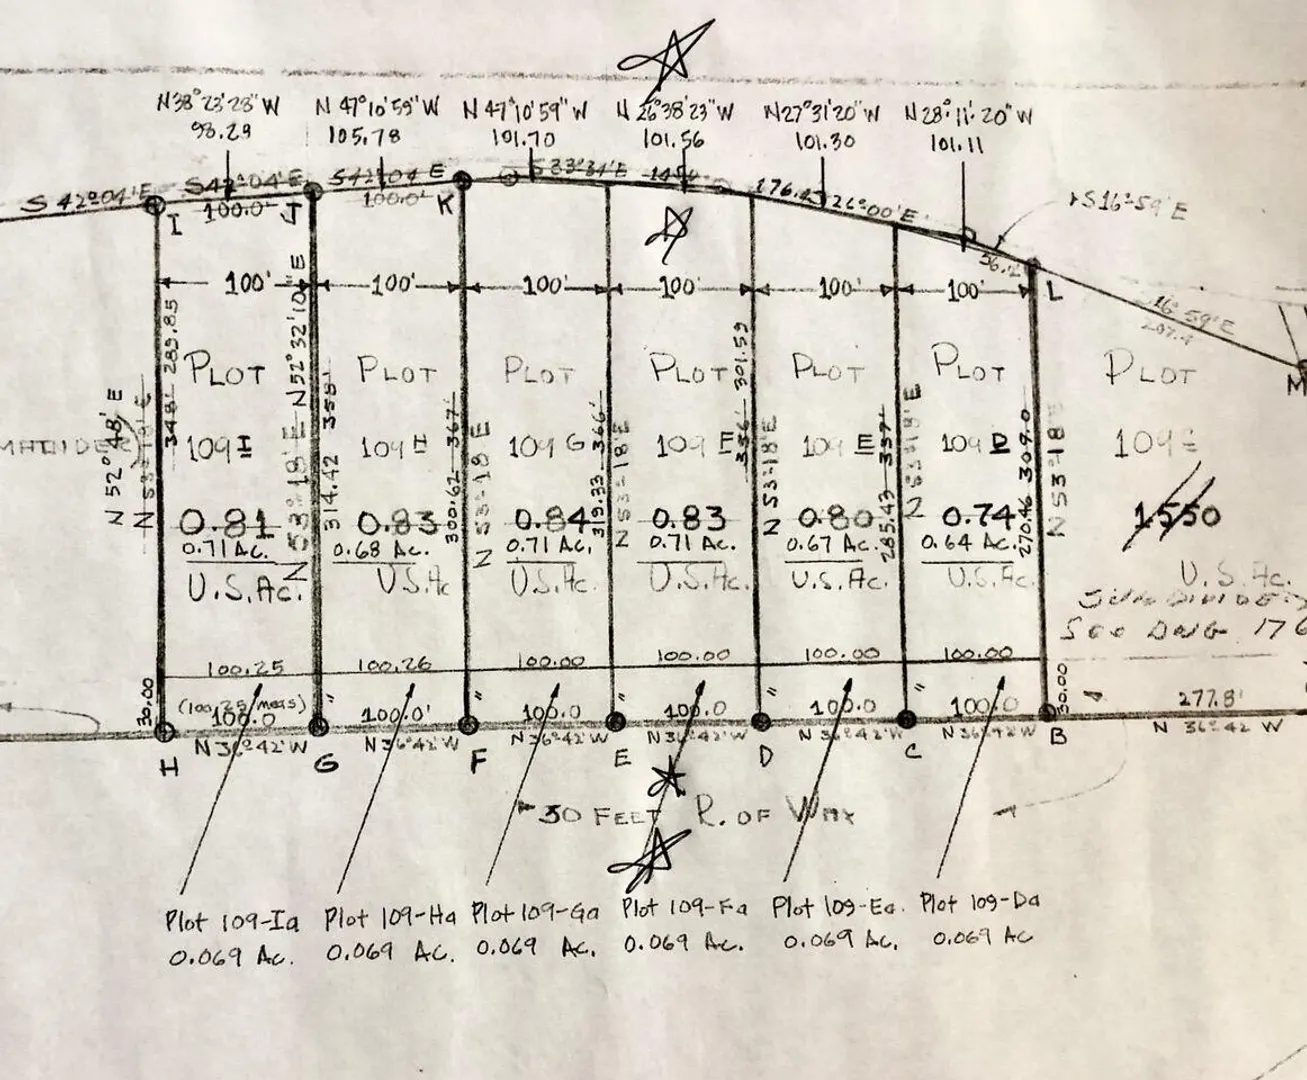 N38°23'28"W N 47°10'59"W N 47°10'59"W N 26°38'23"W N27°31'20"W N28°11'20"W
98.29 105.78 101.70 101.56 101.30 101.11
S 42°04'E S42°04'E S42°04 E S 33°34'E 176.4 26°00'E S16°59'E
100.0' 100.0'
I J K L M
56.2
16°59'E
100' 100' 100' 100' 100' 100'
N 52°48' E
N 53°18' E
348' 289.85
N 53°18' E N52°32'10"E
314.42 355'
300.62 367'
N 53°18 E
319.33 366'
N 53°18 E
336' 301.59
N 53°18'E
285.43 337'
N 53°18'E
270.46 309.0
N 53°18' E
PLOT PLOT PLOT PLOT PLOT PLOT PLOT
109 I 109 H 109 G 109 F 109 E 109 D 109
0.81 0.83 0.84 0.83 0.80 0.74 1550
0.71 AC. 0.68 AC. 0.71 AC. 0.71 AC. 0.67 AC. 0.64 AC.
U.S.Ac. U.S.Ac U.S.Ac. U.S.Ac. U.S.Ac. U.S.Ac. U.S.Ac.
SUBDIVIDED
SEE DWG 176
100.25 100.26 100.00 100.00 100.00 100.00
30.00 30.00
(100.25 meas)
100.0 100.0' 100.0 100.0 100.0 100.0 277.8'
N 36°42'W N 36°42'W N 36°42'W N 36°42'W N 36°42'W N 36°42'W N 36°42 W
H G F E D C B
30 FEET R. OF WAY
Plot 109-Ia Plot 109-Ha Plot 109-Ga Plot 109-Fa Plot 109-Ea. Plot 109-Da
0.069 Ac. 0.069 Ac. 0.069 Ac. 0.069 Ac. 0.069 Ac. 0.069 Ac